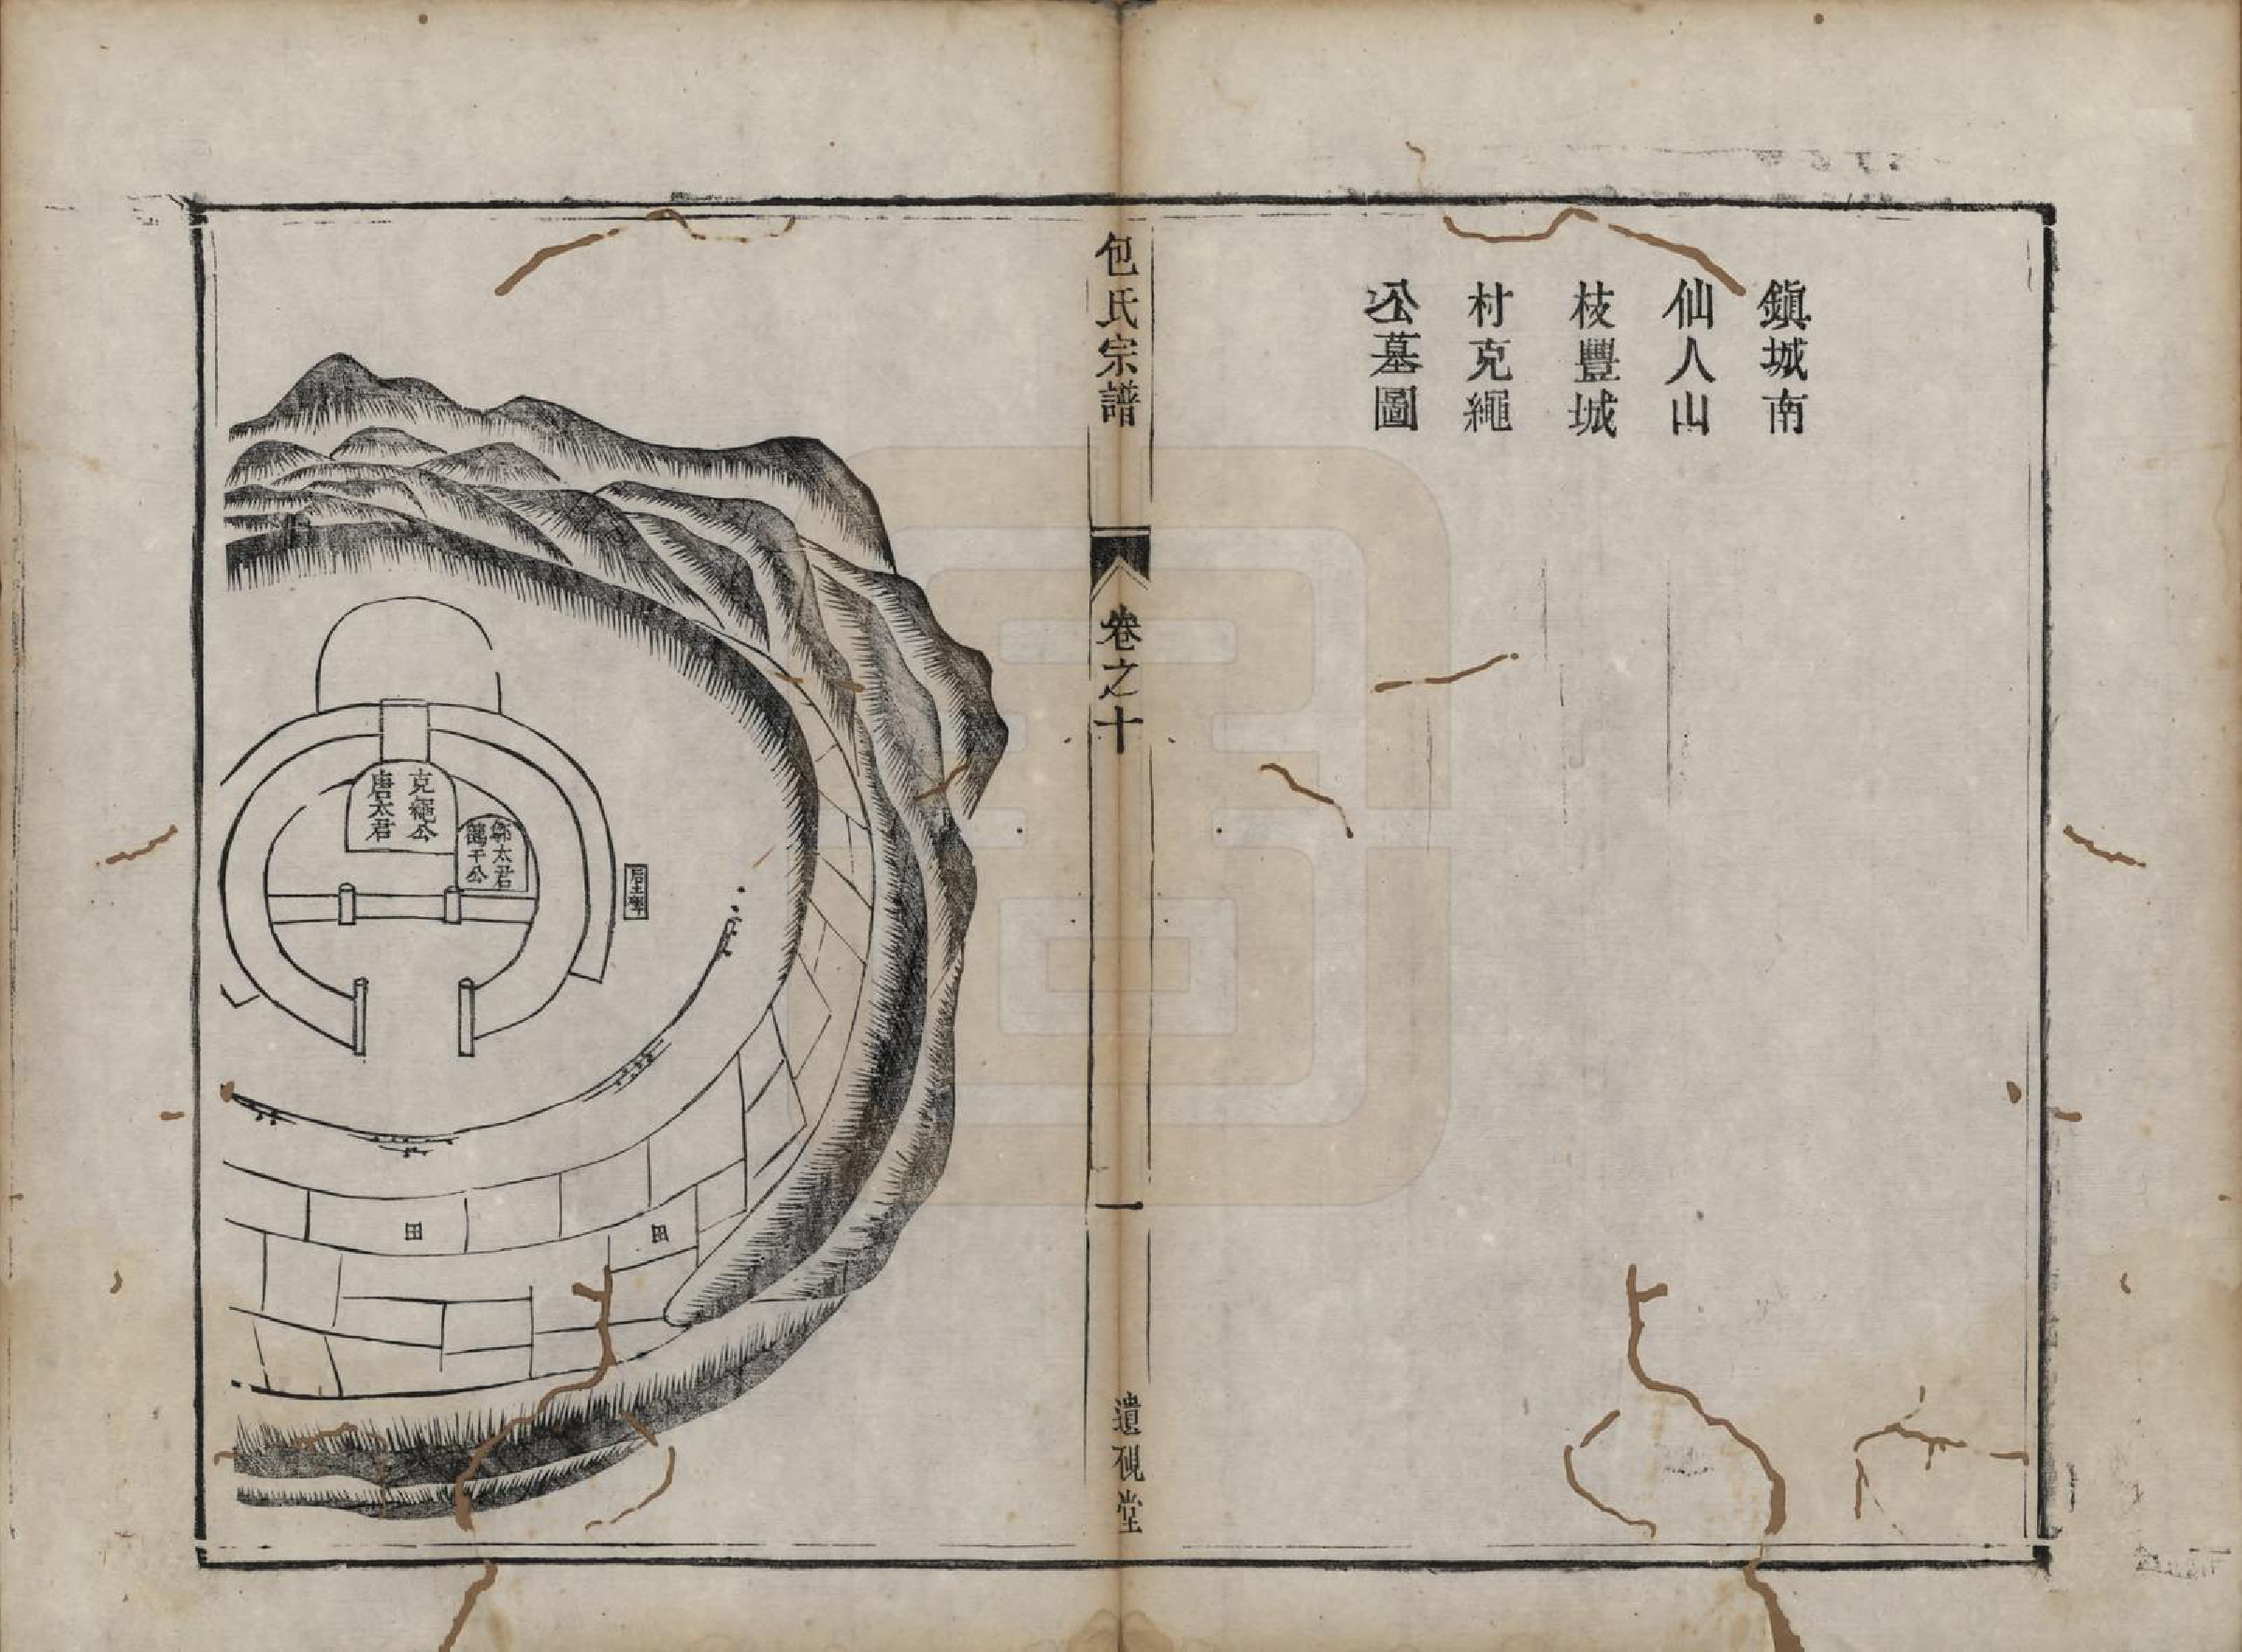 鎮城南
仙人山
枝豐城
村克繩
公墓圖
包氏宗譜
卷之十
一
遺硯堂
克繩公
唐太君
鄒太君
鶴千公
后土碑
田
田